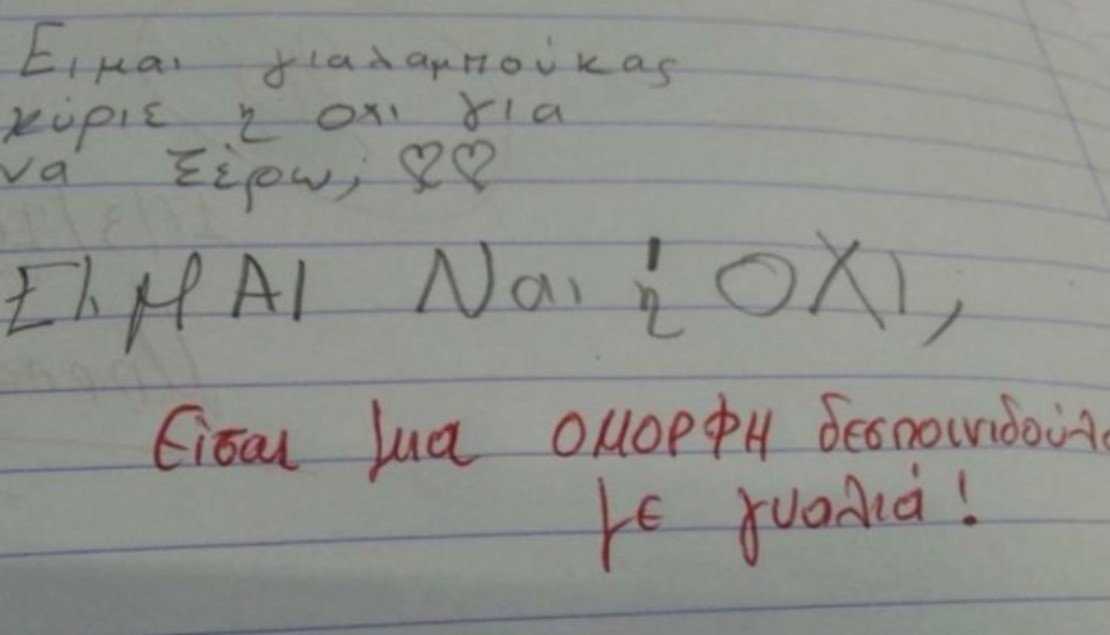 Ειμαι γιαλαμπούκας
κύριε η οχι για
να ξέρω; ♡♡
ΕΙΜΑΙ Ναι ή ΟΧΙ,
Είσαι μια ΟΜΟΡΦΗ δεσποινιδούλα
με γυαλιά!